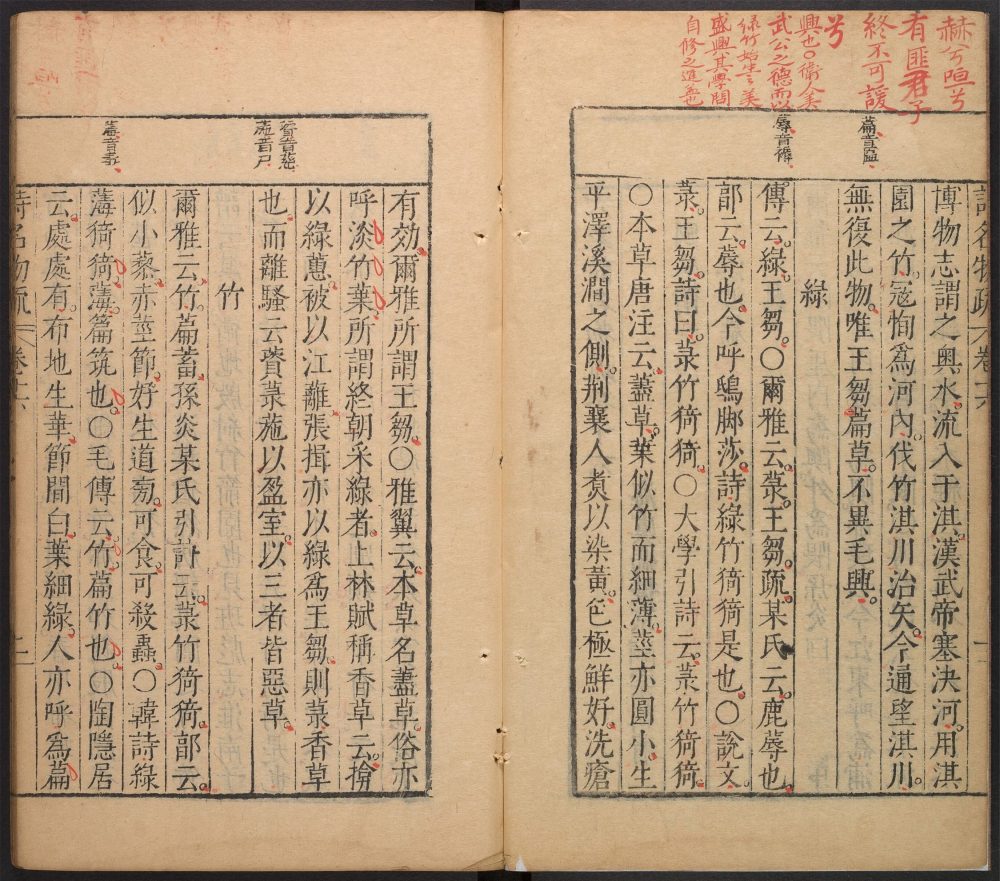 赫兮咺兮
有匪君子
終不可諼
兮
興也〇衛人美
武公之德而以
綠竹始生之美
盛興其學問
自修之進益也
萹音匾
蓐音褥
博物志謂之奧水流入于淇漢武帝塞決河用淇
園之竹寇恂爲河內伐竹淇川治矢今通望淇川
無復此物唯王芻萹草不異毛興
綠
傳云綠王芻〇爾雅云菉王芻疏某氏云鹿蓐也
郭云蓐也今呼鴟脚莎詩綠竹猗猗是也〇說文
菉王芻詩曰菉竹猗猗〇大學引詩云菉竹猗猗
〇本草唐注云藎草葉似竹而細薄莖亦圓小生
平澤溪澗之側荆襄人煑以染黃色極鮮好洗瘡
薋音慈
葹音尸
薄音毒
有効爾雅所謂王芻〇雅翼云本草名藎草俗亦
呼淡竹葉所謂終朝采綠者上林賦稱香草云揜
以綠蕙被以江離張揖亦以綠爲王芻則菉香草
也而離騷云薋菉葹以盈室以三者皆惡草
竹
爾雅云竹萹蓄孫炎某氏引詩云菉竹猗猗郭云
似小藜赤莖節好生道旁可食可殺蟲〇韓詩綠
薄猗猗薄萹筑也〇毛傳云竹萹竹也〇陶隱居
云處處有布地生華節間白葉細綠人亦呼爲萹
詩名物疏 卷十六